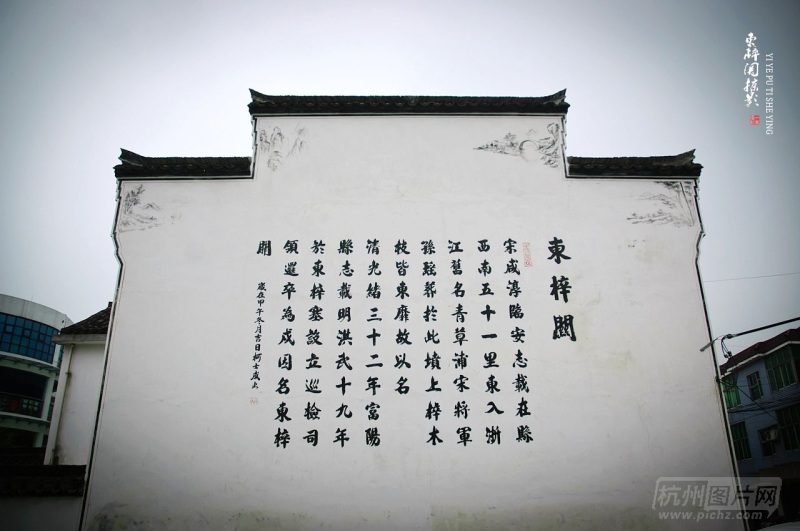 東梓關
宋咸淳臨安志載在縣
西南五十一里東入浙
江舊名青草浦宋將軍
孫瑶葬於此墳上梓木
枝皆東靡故以名
清光緒三十二年富陽
縣志載明洪武十九年
於東梓塞設立巡檢司
領邏卒為戍因名東梓
關
歲在甲午冬月吉日柯士
东梓關摄影
YI YE PU TI SHE YING
杭州图片网
www.pichz.com